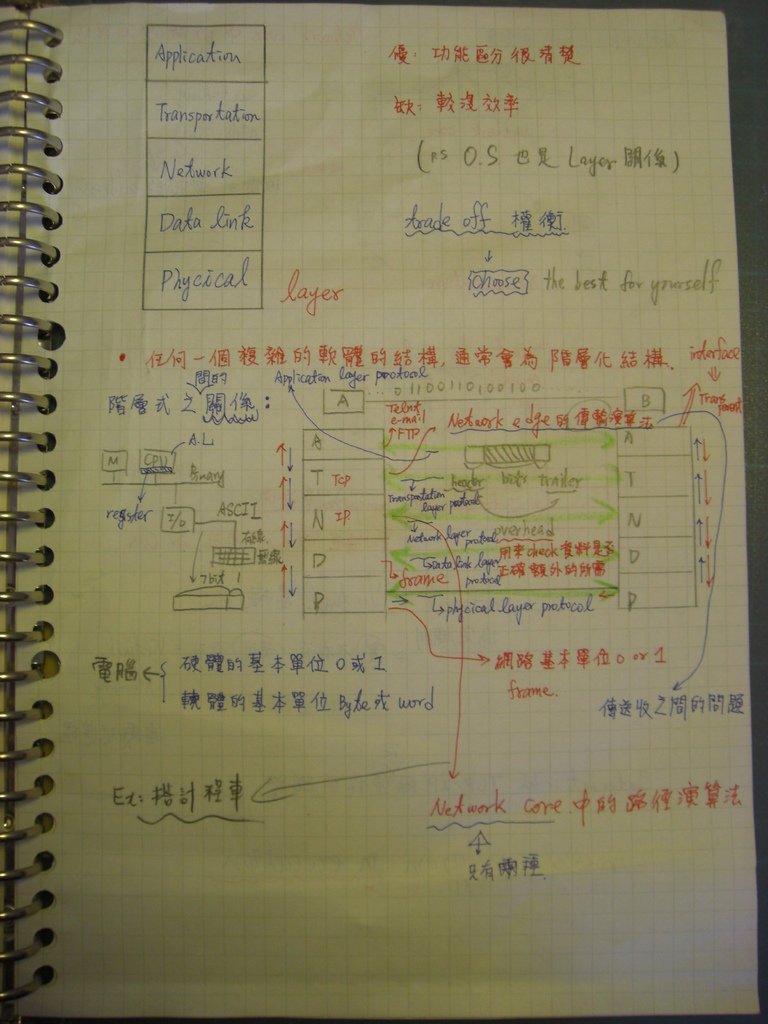 Application
Transportation
Network
Data link
Phycical
layer
優: 功能區分很清楚
缺: 較沒效率
(PS O.S 也是 Layer 關係)
trade off 權衡
choose the best for yourself
• 任何一個複雜的軟體的結構, 通常會為階層化結構.
interface
Transparent
階層式之間的關係:
Application layer protocol
011001101 00100
A
B
Telnet
e-mail
FTP
Network edge的傳輸演算法
A
A
M
CPU
A.L
Binary
register
I/O
ASCII
有線
無線
7bit
T TCP
header bits trailer
T
Transportation layer protocol
overhead
N IP
Network layer protocol
N
用來check資料是否
正確額外的所需
D
frame
Data link layer protocol
D
P
physical layer protocol
P
電腦
硬體的基本單位 0 或 1
軟體的基本單位 Byte 或 word
網路基本單位 0 or 1
frame.
傳送收之間的問題
Ex: 搭計程車
Network core 中的路徑演算法
只有兩種